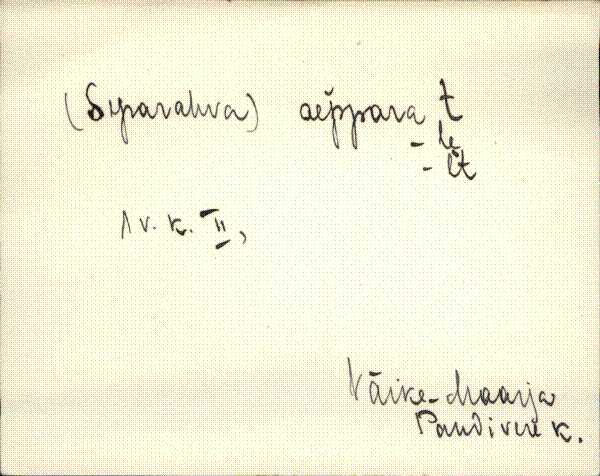 (Siparahva) aeppara t
- le
- lt
1 v. k. II,
Väike-Maarja
Pandivere k.